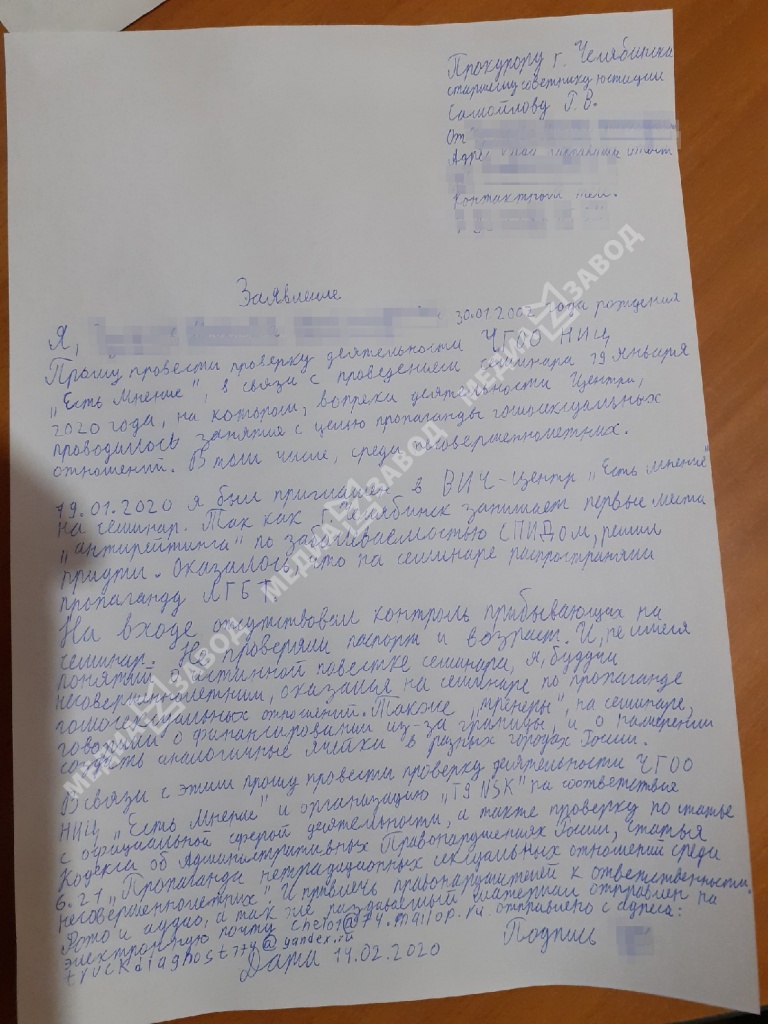 Прокурору г. Челябинска
старшему советнику юстиции
Самойлову Г. В.
От
Адрес
Контактный тел.
Заявление
Я, 30.01.2002 года рождения
Прошу провести проверку деятельности ЧГОО НИЦ
"Есть Мнение", в связи с проведением семинара 19 января
2020 года, на котором, вопреки деятельности Центра,
проводилось занятия с целью пропаганды гомосексуальных
отношений. В том числе, среди несовершеннолетних.
19.01.2020 я был приглашен в ВИЧ-центр "Есть мнение"
на семинар. Так как г. Челябинск занимает первые места
"антирейтинга" по заболеваемостью СПИДом, решил
придти. Оказалось, что на семинаре распространяли
пропаганду ЛГБТ.
На входе отсутствовал контроль прибывающих на
семинар. Не проверяли паспорт и возраст. И, не имея
понятий о истинной повестке семинара, я, будучи
несовершеннолетним, оказался на семинаре по пропаганде
гомосексуальных отношений. Также "тренеры", на семинаре,
говорили о финансировании из-за границы, и о намерении
создать аналогичные "ячейки" в разных городах России.
В связи с этим прошу провести проверку деятельности ЧГОО
НИЦ "Есть Мнение" и организацию "T9 NSK" на соответствие
с официальной сферой деятельности, а также проверку по статье
Кодекса об Административных Правонарушениях России, статья
6.21 "Пропаганда нетрадиционных сексуальных отношений среди
несовершеннолетних". И привлечь правонарушителей к ответственности.
Фото и аудио, а так же раздаваемый материал отправлен на
электронную почту chelo1@74.mailop.ru отправлено с адреса:
truckdiagnost774@yandex.ru
Дата 14.02.2020 Подпись
МЕДИАЗАВОД
МЕДИАЗАВОД
МЕДИАЗАВОД